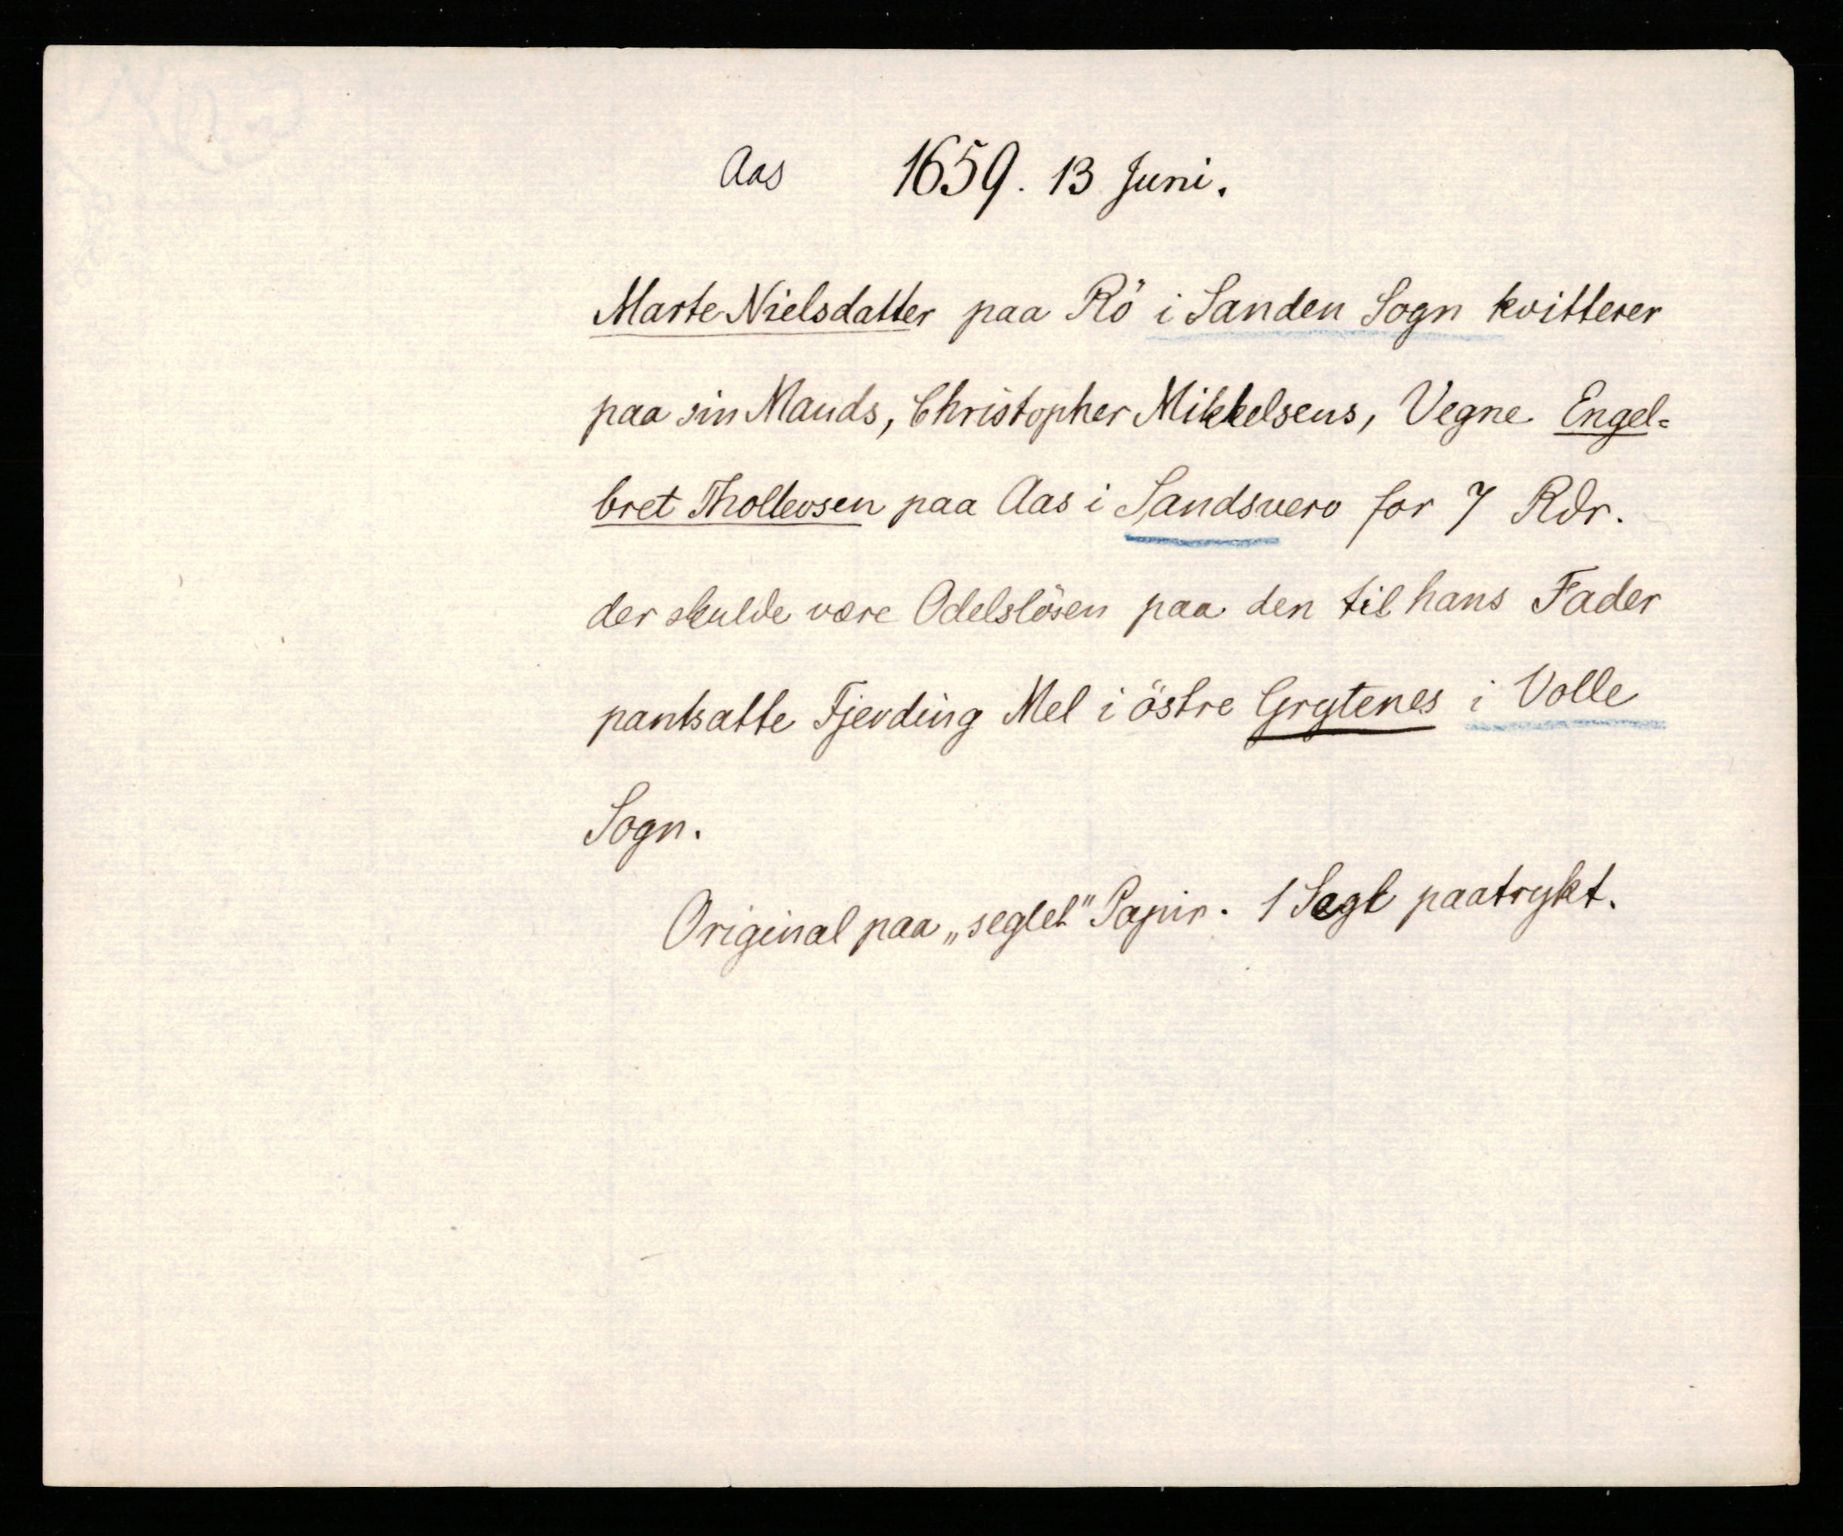 Aas 1659. 13 Juni.
Marte Nielsdatter paa Rö i Sanden Sogn kvitterer
paa sin Mands, Christopher Mikkelsens, Vegne Engel=
bret Thollevsen paa Aas i Sandsverv for 7 Rdr.
der skulde være Odelslösen paa den til hans Fader
pantsatte Fjerding Mel i östre Grytenes i Volle
Sogn.
Original paa „seglet" Papir. 1 Segl paatrykt.